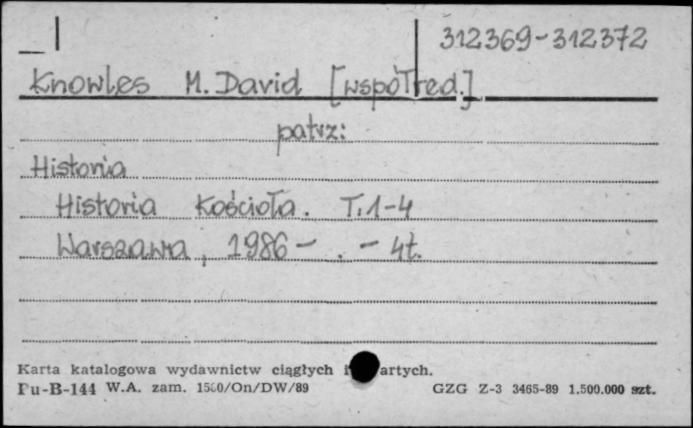 312369-312372
Knowles M. David [współred.]
patrz:
Historia
Historia Kościoła. T.1-4
Warszawa, 1986- . - 4t.
Karta katalogowa wydawnictw ciągłych i artych.
Pu-B-144 W.A. zam. 1500/On/DW/89 GZG Z-3 3465-89 1.500.000 szt.